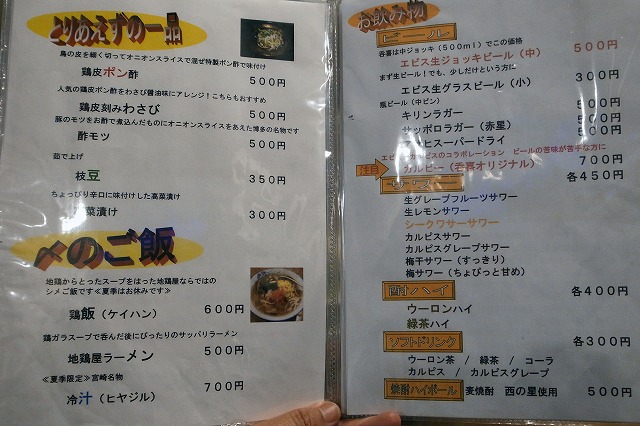 とりあえずの一品
鳥の皮を細く切ってオニオンスライスで混ぜ特製ポン酢で味付け
鶏皮ポン酢 500円
人気の鶏皮ポン酢をわさび醤油味にアレンジ！こちらもおすすめ
鶏皮刻みわさび 500円
豚のモツをお酢で煮込んだものにオニオンスライスをあえた博多の名物です
酢モツ 500円
茹で上げ
枝豆 350円
ちょっぴり辛口に味付けした高菜漬け
菜漬け 300円
〆のご飯
地鶏からとったスープをはった地鶏屋ならではの
シメご飯です≪夏季はお休みです≫
鶏飯（ケイハン） 600円
鶏ガラスープで呑んだ後にぴったりのサッパリラーメン
地鶏屋ラーメン 500円
≪夏季限定≫宮崎名物
冷汁（ヒヤジル） 700円
お飲み物
ビール
呑喜は中ジョッキ（500ml）でこの価格
エビス生ジョッキビール（中） 500円
まず生ビール！でも、少しだけという方に
エビス生グラスビール（小） 300円
瓶ビール（中ビン）
キリンラガー 500円
サッポロラガー（赤星） 500円
ヒスーパードライ 500円
エビ カルピスのコラボレーション ビールの苦味が苦手な方に
注目 カルビー（呑喜オリジナル） 700円
サワー 各450円
生グレープフルーツサワー
生レモンサワー
シークワサーサワー
カルピスサワー
カルピスグレープサワー
梅干サワー（すっきり）
梅サワー（ちょびっと甘め）
酎ハイ 各400円
ウーロンハイ
緑茶ハイ
ソフトドリンク 各300円
ウーロン茶 / 緑茶 / コーラ
カルピス / カルピスグレープ
焼酎ハイボール 麦焼酎 西の星使用 500円